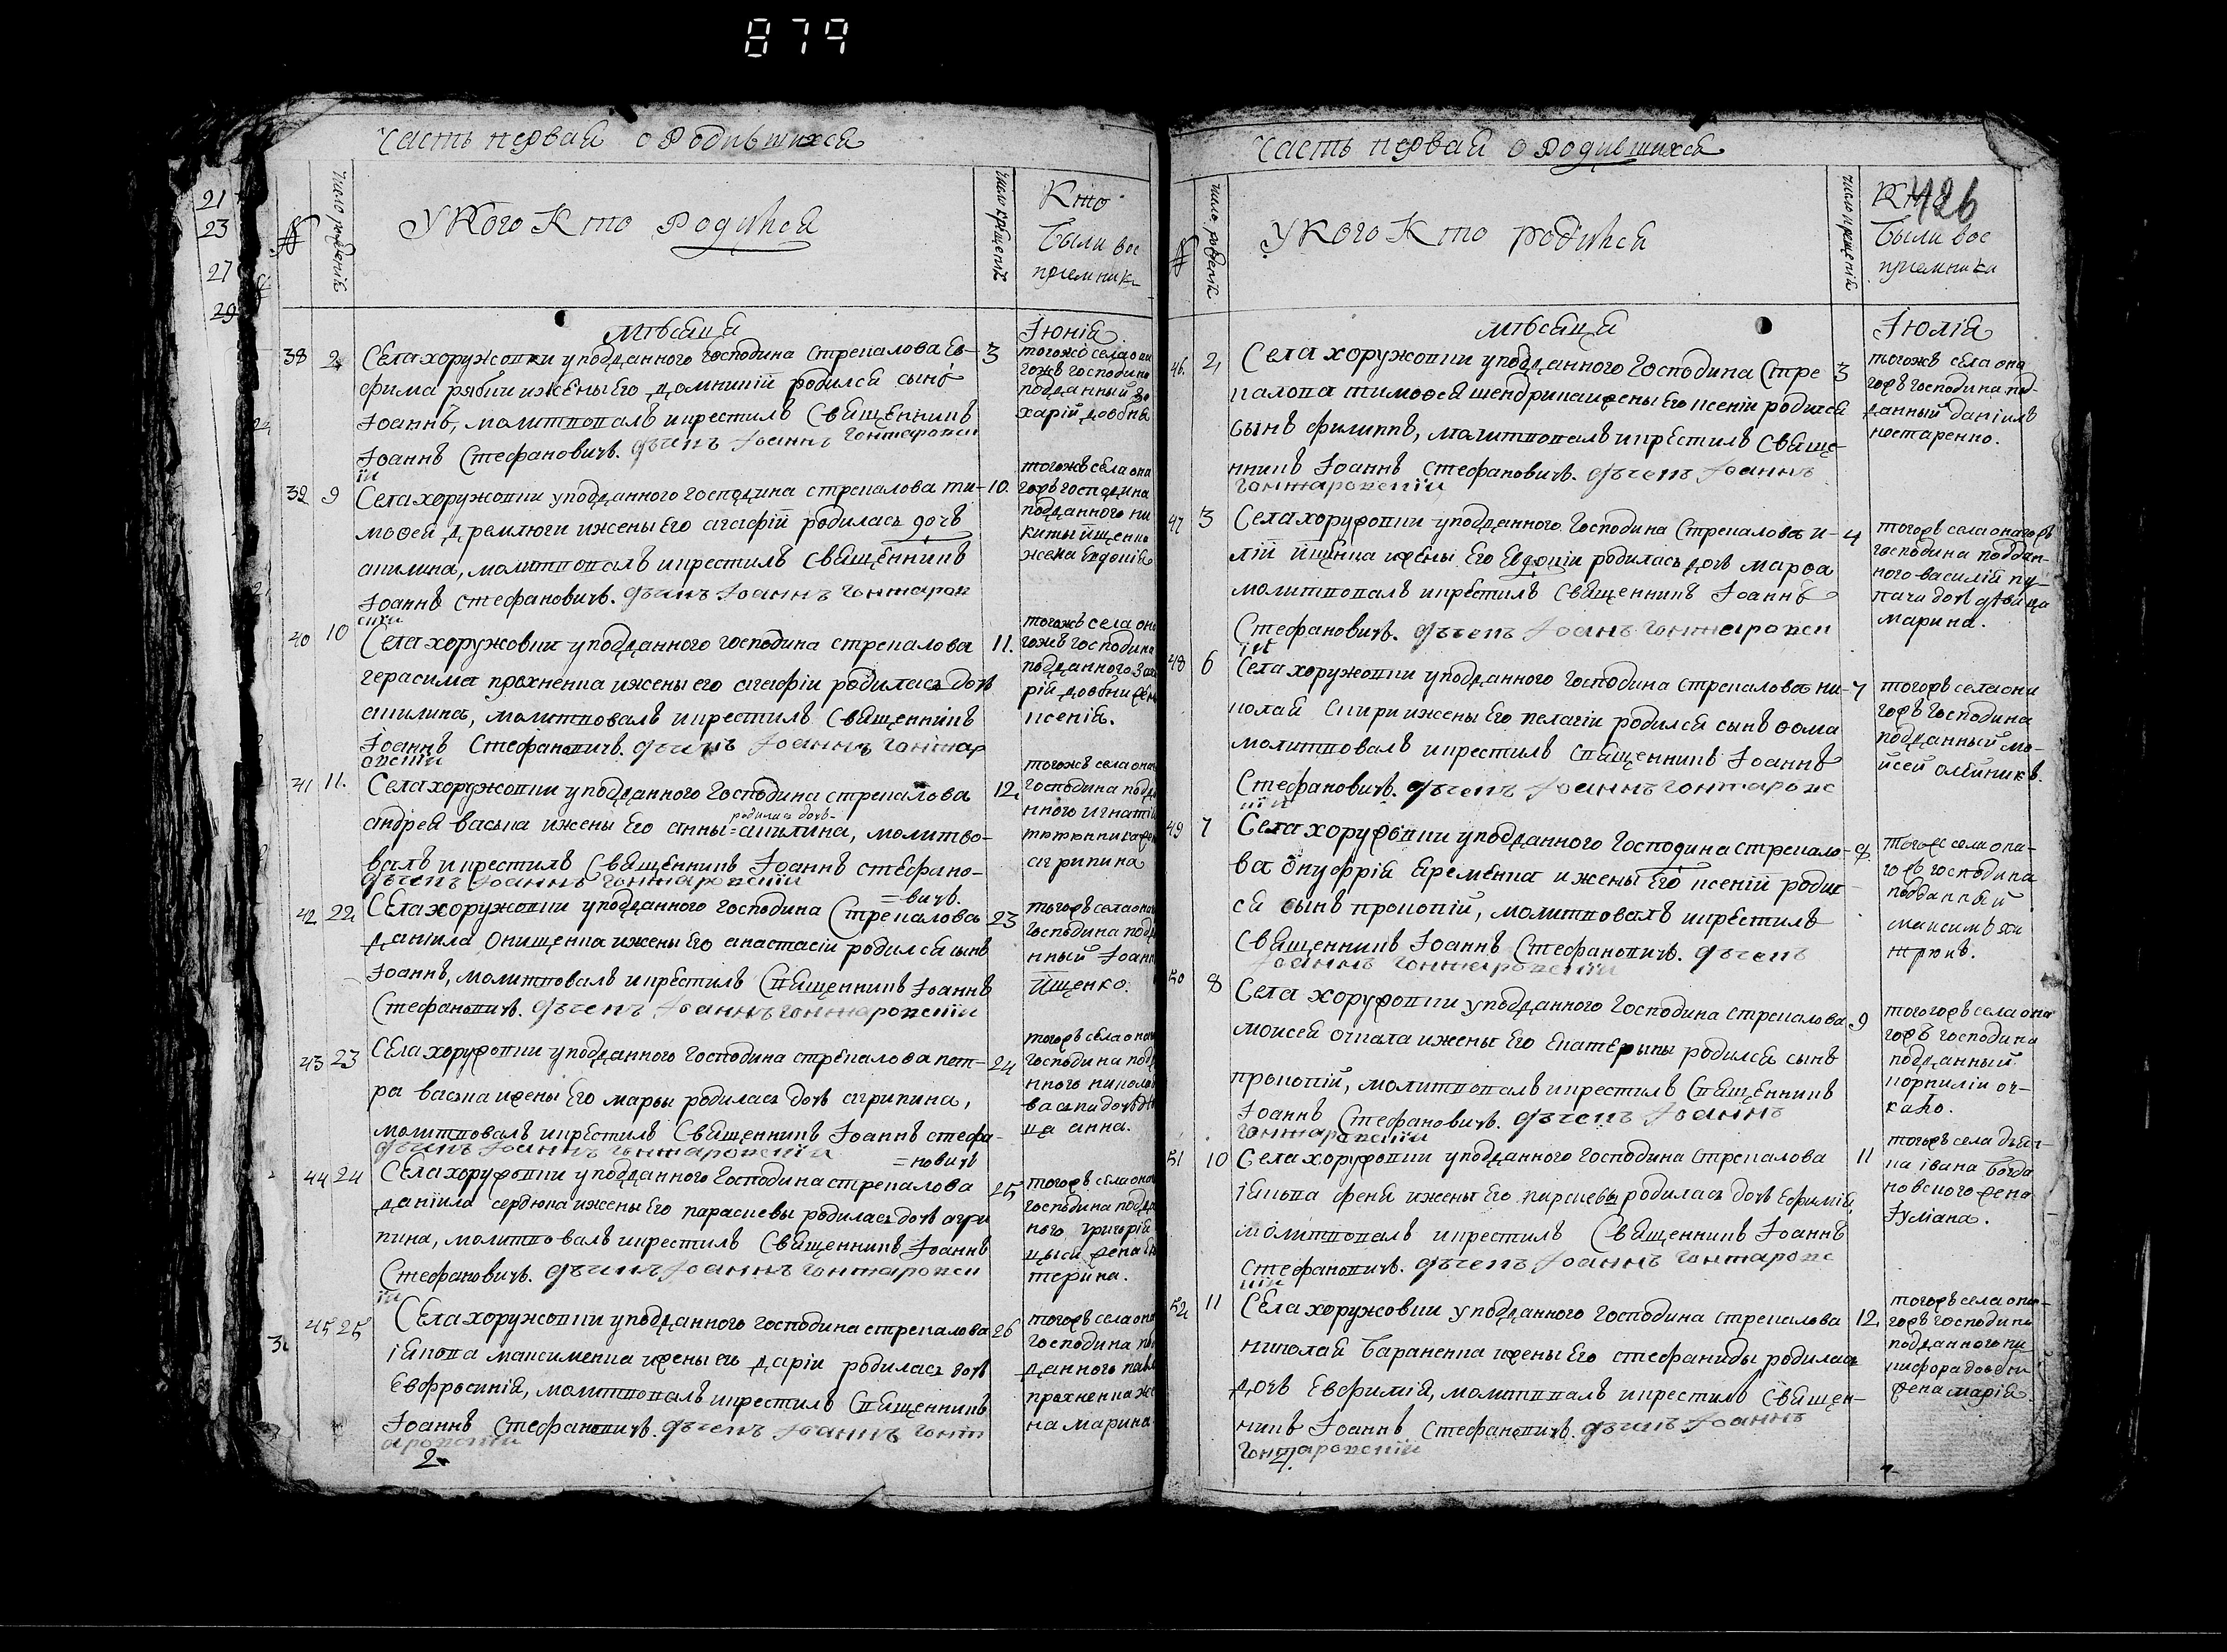 879
Часть первая о Родившихся
№
число рождения
У Кого Кто Родился
число крещения
Кто
были вос
приемники
Мѣсяца
Іюнія
38 2 Села хоружовки у подданного господина стрекалова Ев-
фима рябки и жены его домникіи родился сынъ
Іоаннъ, молитвовалъ и крестилъ Священникъ
Іоаннъ Стефановичъ. дьячекъ Іоаннъ гонтаровск
ій
3
тогожъ села она
гожъ господина
подданный За
харій довбня
39 9 Села хоружовки у подданного господина стрекалова ти-
мофея дремлюги и жены его агафіи родилась дочь
акилина, молитвовалъ и крестилъ Священникъ
Іоаннъ стефановичъ. дьячекъ Іоаннъ гонтаров
скій
10.
тогожъ села она
гожъ господина
подданного ни
киты йщенка
жена Евдокія
40 10 Села хоружовки у подданного господина стрекалова
герасима прохненка и жены его агафіи родилась дочь
акилина, молитвовалъ и крестилъ Священникъ
Іоаннъ Стефановичъ. дьячекъ Іоаннъ гонтар
овскій
11.
тогожъ села она
гожъ господина
подданного Заха
рій довбни жена
ксенія.
41 11. Села хоружовки у подданного господина стрекалова
родилась дочь
андрея васька и жены его анны = акилина, молитво-
валъ и крестилъ Священникъ Іоаннъ стефано-
= вичъ.
дьячекъ Іоаннъ гонтаровскій
12.
тогожъ села она
господина подда
нного игнатія
тютюнника жен
агрипина
42 22 Села хоружовки у подданного господина Стрекалова
даніила Онищенка и жены его анастасіи родился сынъ
Іоаннъ, молитвовалъ и крестилъ Священникъ Іоаннъ
Стефановичъ. дьячекъ Іоаннъ гонтаровскій
23
тогожъ села она
господина подда
нный Іоанн
Йщенко.
43 23 Села хоружовки у подданного господина стрекалова пет-
ра васька и жены его марьи родилась дочь агрипина,
молитвовалъ и крестилъ Священникъ Іоаннъ стефа-
= новичъ
дьячекъ Іоаннъ гонтаровскій
24
тогожъ села она
господина подда
нного николая
васька дочь дѣви
ца анна.
44 24 Села хоружовки у подданного господина стрекалова
даніила сердюка и жены его параскевы родилась дочь агри
пина, молитвовалъ и крестилъ Священникъ Іоаннъ
Стефановичъ. дьячекъ Іоаннъ гонтаровск
ій
25
тогожъ села она
господина подда
ного григорія
жена Ека
терина.
45 25 Села хоружовки у подданного господина стрекалова
іякова максименка и жены его даріи родилась дочь
Евфросинія, молитвовалъ и крестилъ Священникъ
Іоаннъ Стефановичъ. дьячекъ Іоаннъ гонт
аровскій
26
тогожъ села она
господина под
данного павла
прохненка же
на марина
2
Часть первая о Родившихся
426
№
число рожденія
У Кого Кто родился
число крещенія
Кто
были вос
приемники
Мѣсяца
Іюлія
46. 2 Села хоружовки у подданного господина Стре
калова тимофея шендрика и жены его ксеніи родился
сынъ филиппъ, молитвовалъ и крестилъ Свяще-
нникъ Іоаннъ стефановичъ. дьячекъ Іоаннъ
гонтаровскій
3
тогожъ села она
гожъ господина под-
данный даніилъ
костаренко.
47 3 Села хоружовки у подданного господина Стрекалова и-
лій йщенка и жены его Евдокіи родилась дочь марфа
молитвовалъ и крестилъ Священникъ Іоаннъ
Стефановичъ. дьячекъ Іоаннъ гонтаровск
ій
4
тогожъ села оного жъ
господина поддан-
ного василія пу-
гача дочь дѣвица
марина.
48 6 Села хоружовки у подданного господина Стрекалова ни-
колая Скири и жены его пелагіи родился сынъ фома
молитвовалъ и крестилъ Священникъ Іоаннъ
Стефановичъ. дьячекъ Іоаннъ гонтаровс
кій
7
тогожъ села она
гожъ господина
подданный мо-
йсей олѣйникъ.
49 7 Села хоружовки у подданного господина стрекало-
ва онуфрія Яременка и жены его ксеніи родил
ся сынъ прокопій, молитвовалъ и крестилъ
Священникъ Іоаннъ Стефановичъ. дьячекъ
Іоаннъ гонтаровскій
8
тогожъ села она-
гожъ господина
подданный
максимъ
50 8 Села хоружовки у подданного господина стрекалова
моисея очката и жены его Екатерины родился сынъ
прокопій, молитвовалъ и крестилъ Священникъ
Іоаннъ Стефановичъ. дьячекъ Іоаннъ
гонтаровскій
9
того жъ села она
гожъ господина
подданный
корнилій оч-
кало.
51 10 Села хоружовки у подданного господина Стрекалова
іякова феня и жены его параскевы родилась дочь Ефимія,
молитвовалъ и крестилъ Священникъ Іоаннъ
Стефановичъ. дьячекъ Іоаннъ гонтаровс
кій
11
тогожъ села дьяч-
ка івана богда
новского жена
Іуліана.
52 11 Села хоружовки у подданного господина стрекалова
николая бараненка и жены его стефаниды родилась
дочь Евфимія, молитвовалъ и крестилъ Священ-
никъ Іоаннъ Стефановичъ. дьячекъ Іоаннъ
гонтаровскій
12
тогожъ села она-
гожъ господина
подданного ни
кифора довбни
жена марія